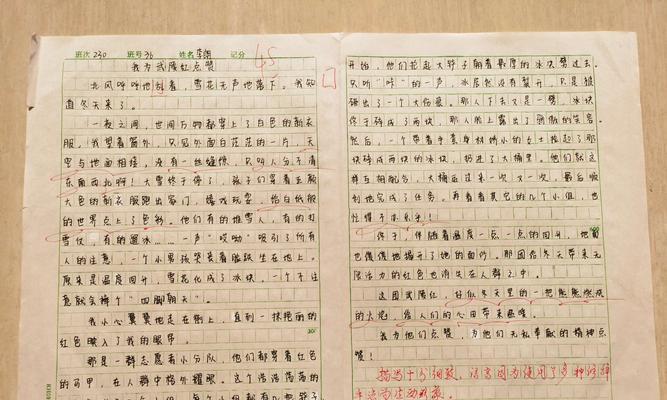 班次 230 班号 36 姓名 李朗 记分 45
我为武隆红点赞
北风呼呼地刮着，雪花无声地落下。我知
道冬天来了。
一夜之间，世间万物都穿上了白色的新衣
服。我望着窗外，只见外面白花花的一片，天
空与地面相接，没有一丝缝隙，只叫人分不清
东南西北啊！大雪终于停了，孩子们穿着五颜
六色的新衣服跑出家门，嬉戏玩耍，给白纸般
的世界点上了色彩。他们有的堆雪人，有的打
雪仗，有的溜冰……一声“哎呦”吸引了所有
人的注意，一个小男孩哭丧着脸跌坐在地上。
原来是温度回升，雪花化成了冰块，一个不注
意就会摔个“四脚朝天”。
我小心翼翼地走在街上，直到一抹艳丽的
红色映入了我的眼帘。
那是一群志愿者小分队，他们都穿着红色
的马甲，在人群中格外耀眼。这个浩浩荡荡的
开始，他们抡起大铲子朝着最厚的冰块劈过去。
只听“咔”的一声，冰居然没有裂开，只是被
砸出了一个大伤痕。那人下去又是一劈，冰块
终于碎成了两块，那人脸上露出了骄傲的笑容。
然后，一个带着手套身材娇小的女士捡起了那
块碎成两块的冰块，扔进了大桶里。他们就这
样互相配合，大桶运过来一次又一次，最后顺
利地完成了任务。再看看其它的几个小组，也
忙得不亦乐乎！
终于，伴随着温度一点一点的回升，地面
也慢慢地揭开了她的面纱。那团给冬天带来无
限活力的红色也消失在人群之中。
这团武隆红，好似冬天里的一把熊熊燃烧
的火炬，给人们的心田带来温暖。
我为他们点赞，为他们无私奉献的精神点
赞！
描写十分细致，语言因为使用了多种修辞